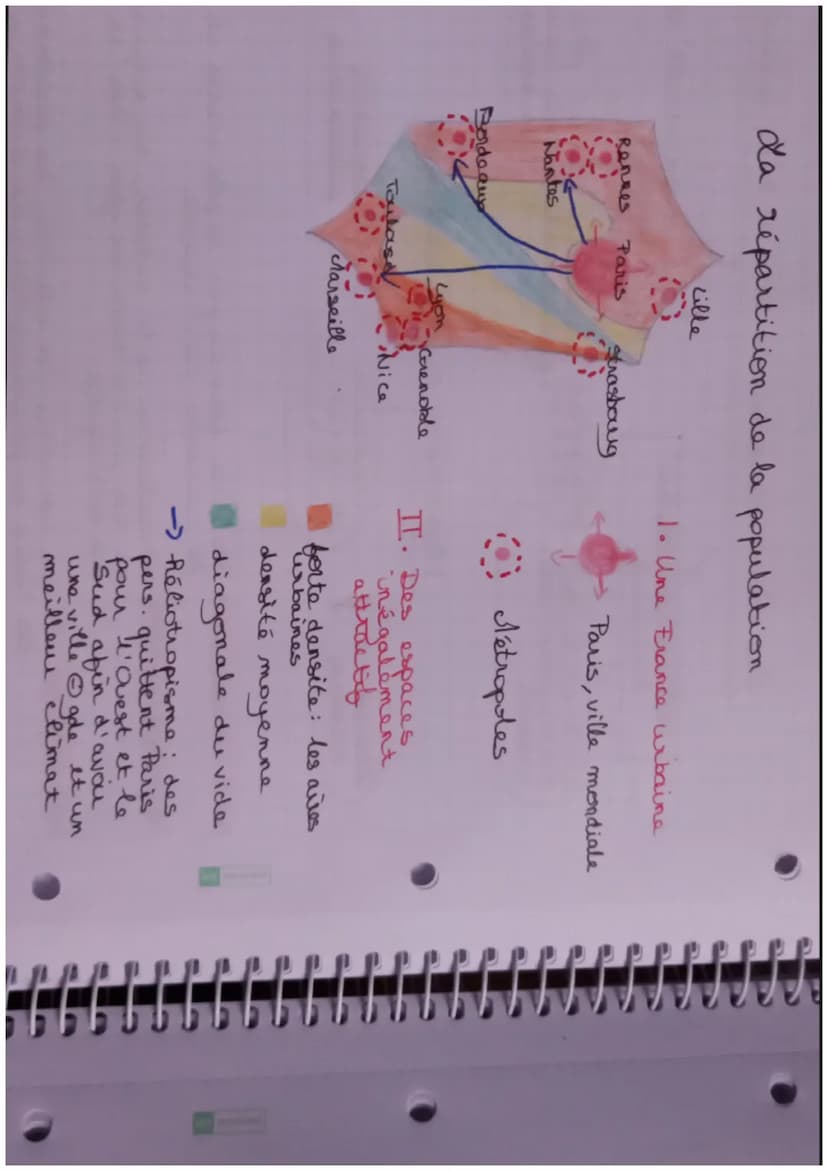 La répartition de la population
Lille
Rennes
Paris
Strasbourg
Nantes
Bordeaux
Lyon
Grenoble
Toulouse
Nice
Marseille
1. Une France urbaine
Paris, ville mondiale
Métropoles
II. Des espaces
inégalement
attractifs
forte densité : les aires
urbaines
densité moyenne
diagonale du vide
→ Héliotropisme : des
pers. quittent Paris
pour l'Ouest et le
Sud afin d'avoir
une ville ⊖ gde et un
meilleur climat